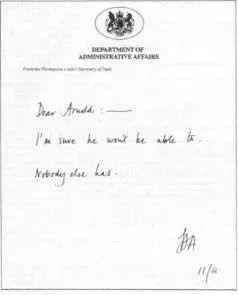 DEPARTMENT OF
ADMINISTRATIVE AFFAIRS
From the Permanent Under-Secretary of State
Dear Arnold :—
I'm sure he won't be able to.
Nobody else has.
HA
11/iii